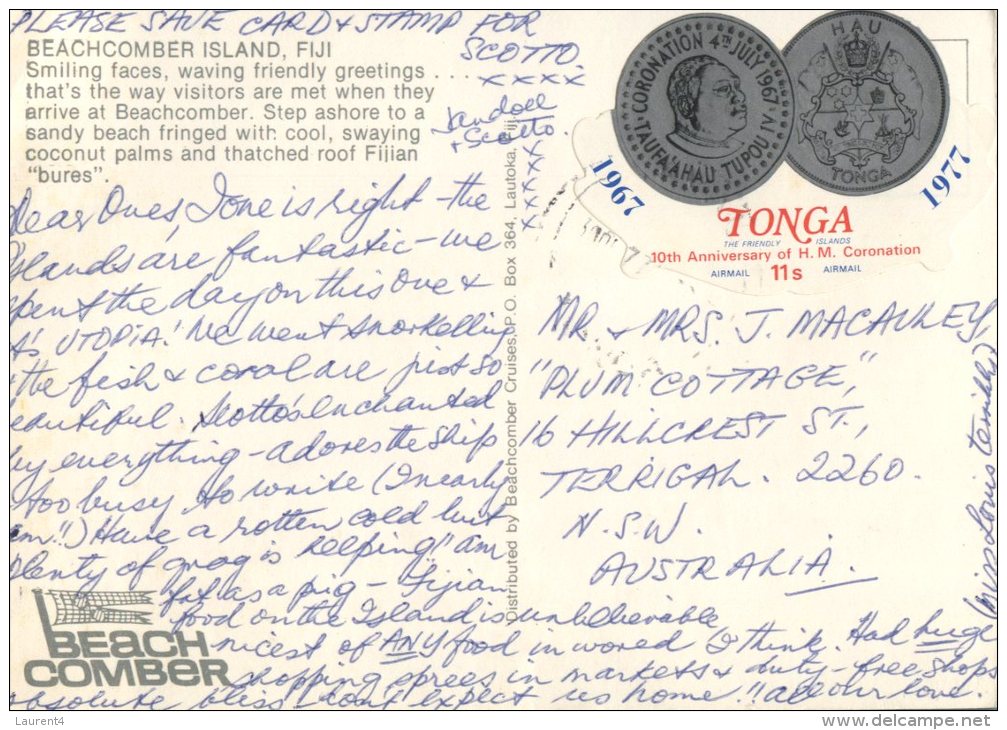 PLEASE SAVE CARD & STAMP FOR
SCOTTO.
xxxx
BEACHCOMBER ISLAND, FIJI
Smiling faces, waving friendly greetings ....
that's the way visitors are met when they
arrive at Beachcomber. Step ashore to a
sandy beach fringed with cool, swaying
coconut palms and thatched roof Fijian
"bures".
& Scotto.
xxxxx
Dear Ones, Ione is right - the
Islands are fantastic - we
spent the day on this one &
it's UTOPIA! We went snorkelling
the fish & coral are just so
beautiful. Scotto's enchanted
by everything - adores the ship
too busy to write (I nearly
am!!) Have a rotten cold but
plenty of grog is helping!! am
fat as a pig - Fijian
food on the Island is unbelievable
nicest of ANY food in world I think. Had huge
shopping sprees in markets & duty-free shops
absolute bliss! don't expect us home!! all our love.
(miss Louis terribly)
BEACH
COMBER
Distributed by Beachcomber Cruises, P.O. Box 364, Lautoka, Fiji
CORONATION 4TH JULY 1967
TAUFA'AHAU TUPOU IV
HAU
TONGA
1967
1977
TONGA
THE FRIENDLY ISLANDS
10th Anniversary of H.M. Coronation
AIRMAIL 11s AIRMAIL
MR. & MRS. J. MACAULEY,
"PLUM COTTAGE,"
16 HILLCREST ST.,
TERRIGAL. 2260.
N.S.W.
AUSTRALIA.
Laurent4